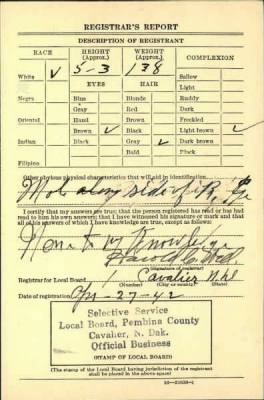 REGISTRAR'S REPORT
DESCRIPTION OF REGISTRANT
RACE HEIGHT (Approx.) WEIGHT (Approx.) COMPLEXION
White ✓ 5-3 138 Sallow
EYES HAIR Light
Negro Blue Blonde Ruddy
Gray Red Dark
Oriental Hazel Brown Freckled
Brown ✓ Black Light brown ✓
Indian Black Gray ✓ Dark brown
Bald Black
Filipino
Other obvious physical characteristics that will aid in identification
Mole along side of R.
I certify that my answers are true; that the person registered has read or has had
read to him his own answers; that I have witnessed his signature or mark and that
all of his answers of which I have knowledge are true, except as follows:
None to my Knowledge
(Signature of registrar)
Registrar for Local Board 1 Cavalier N.D.
(Number) (City or county) (State)
Date of registration Apr-27-42
Selective Service
Local Board, Pembina County
Cavalier, N. Dak.
Official Business
(STAMP OF LOCAL BOARD)
(The stamp of the Local Board having jurisdiction of the registrant
shall be placed in the above space)